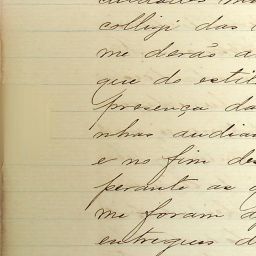 colligi das
me derão a
que do estil
presença da
nhas audian
e no fim des
perante as q
me foram a
entregues d